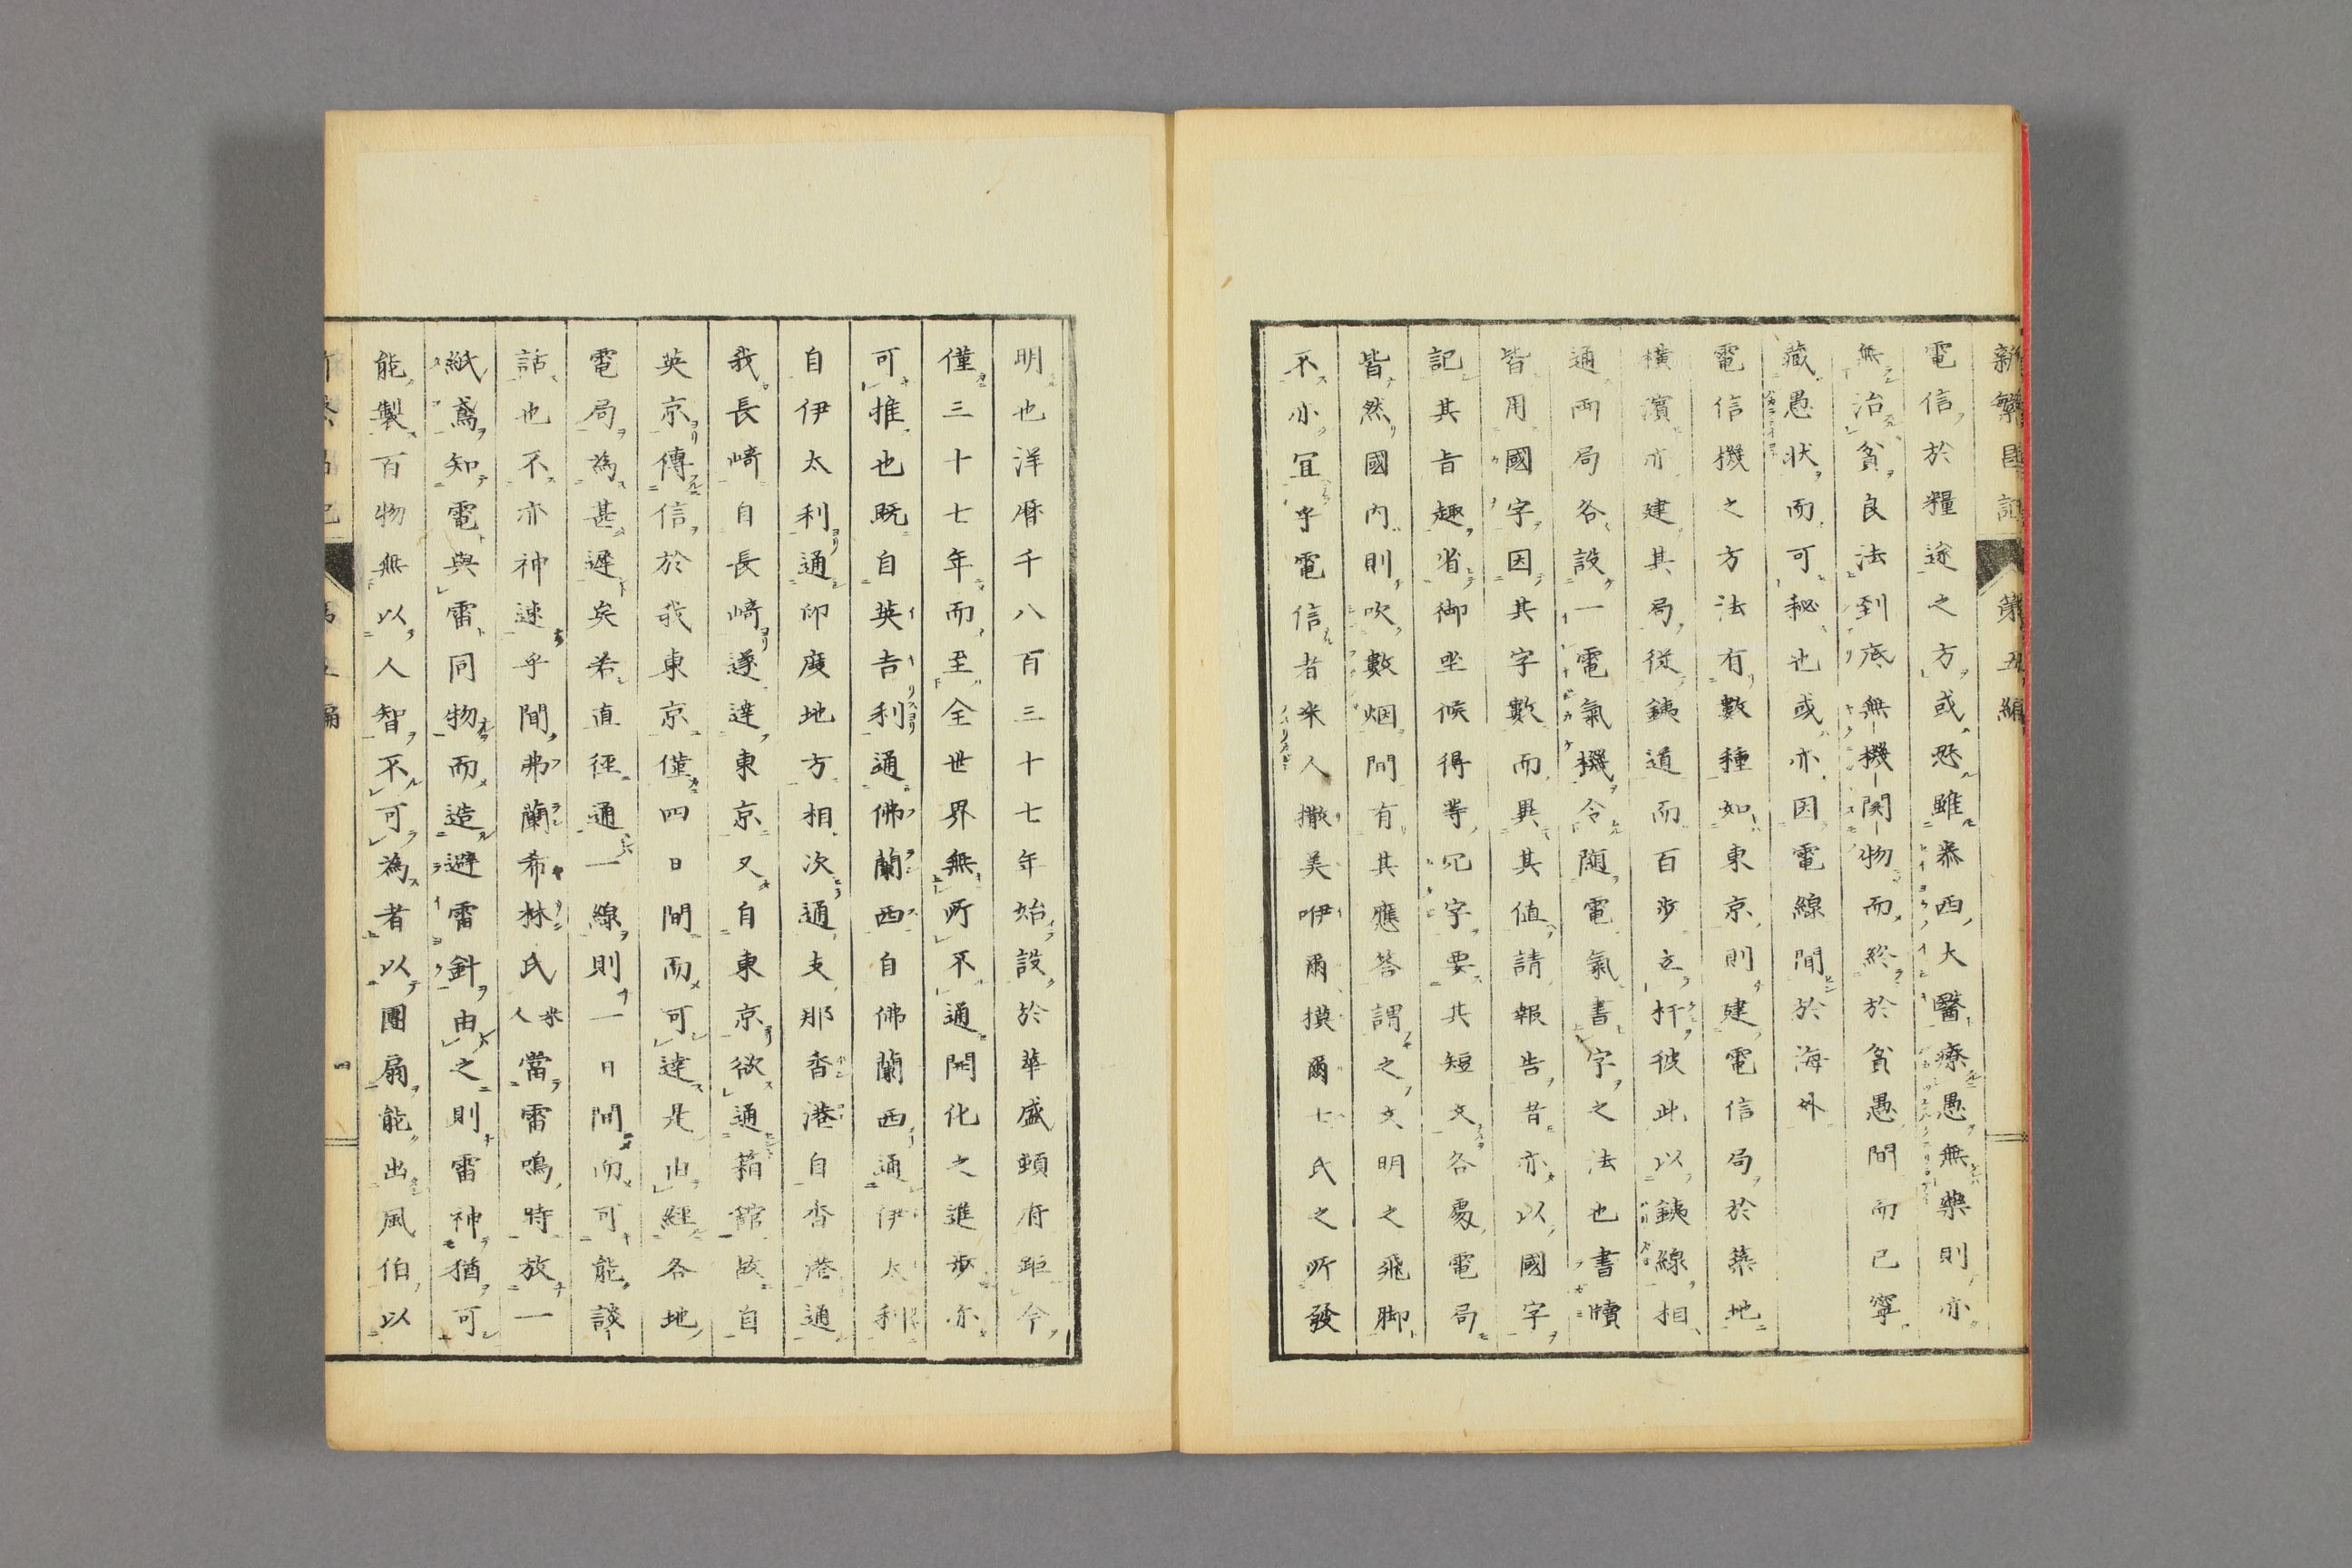 新繁昌記 第五編
電信於糧途之方或恐雖泰西大醫療愚無藥則亦
無治貧良法到底無機関物而終於貧愚間而已寧
藏愚状而可秘也或亦因電線聞於海外
電信機之方法有數種如東京則建電信局於築地
橫濱亦建其局從銕道而百步立杆彼此以銕線相
通両局各設一電氣機令随電氣書字之法也書牘
皆用國字因其字數而異其値請報告昔亦以國字
記其旨趣省御坐候得等冗字要其短文各處電局
皆然國內則吹數烟間有其應答謂之文明之飛脚
不亦宜乎電信者米人撒美咿爾摸爾士氏之所發
明也洋暦千八百三十七年始設於華盛頓府距今
僅三十七年而至全世界無所不通開化之進步亦
可推也既自英吉利通佛蘭西自佛蘭西通伊太利
自伊太利通印度地方相次通支那香港自香港通
我長崎自長崎遂達東京又自東京欲通箱館故自
英京傳信於我東京僅四日間而可達是由經各地
電局為甚遲矣若直徑通一線則一日間而可能談
話也不亦神速乎間弗蘭希林氏米人當雷鳴時放一
紙鳶知電與雷同物而造避雷針由之則雷神猶可
能製百物無以人智不可為者以團扇能出風伯以